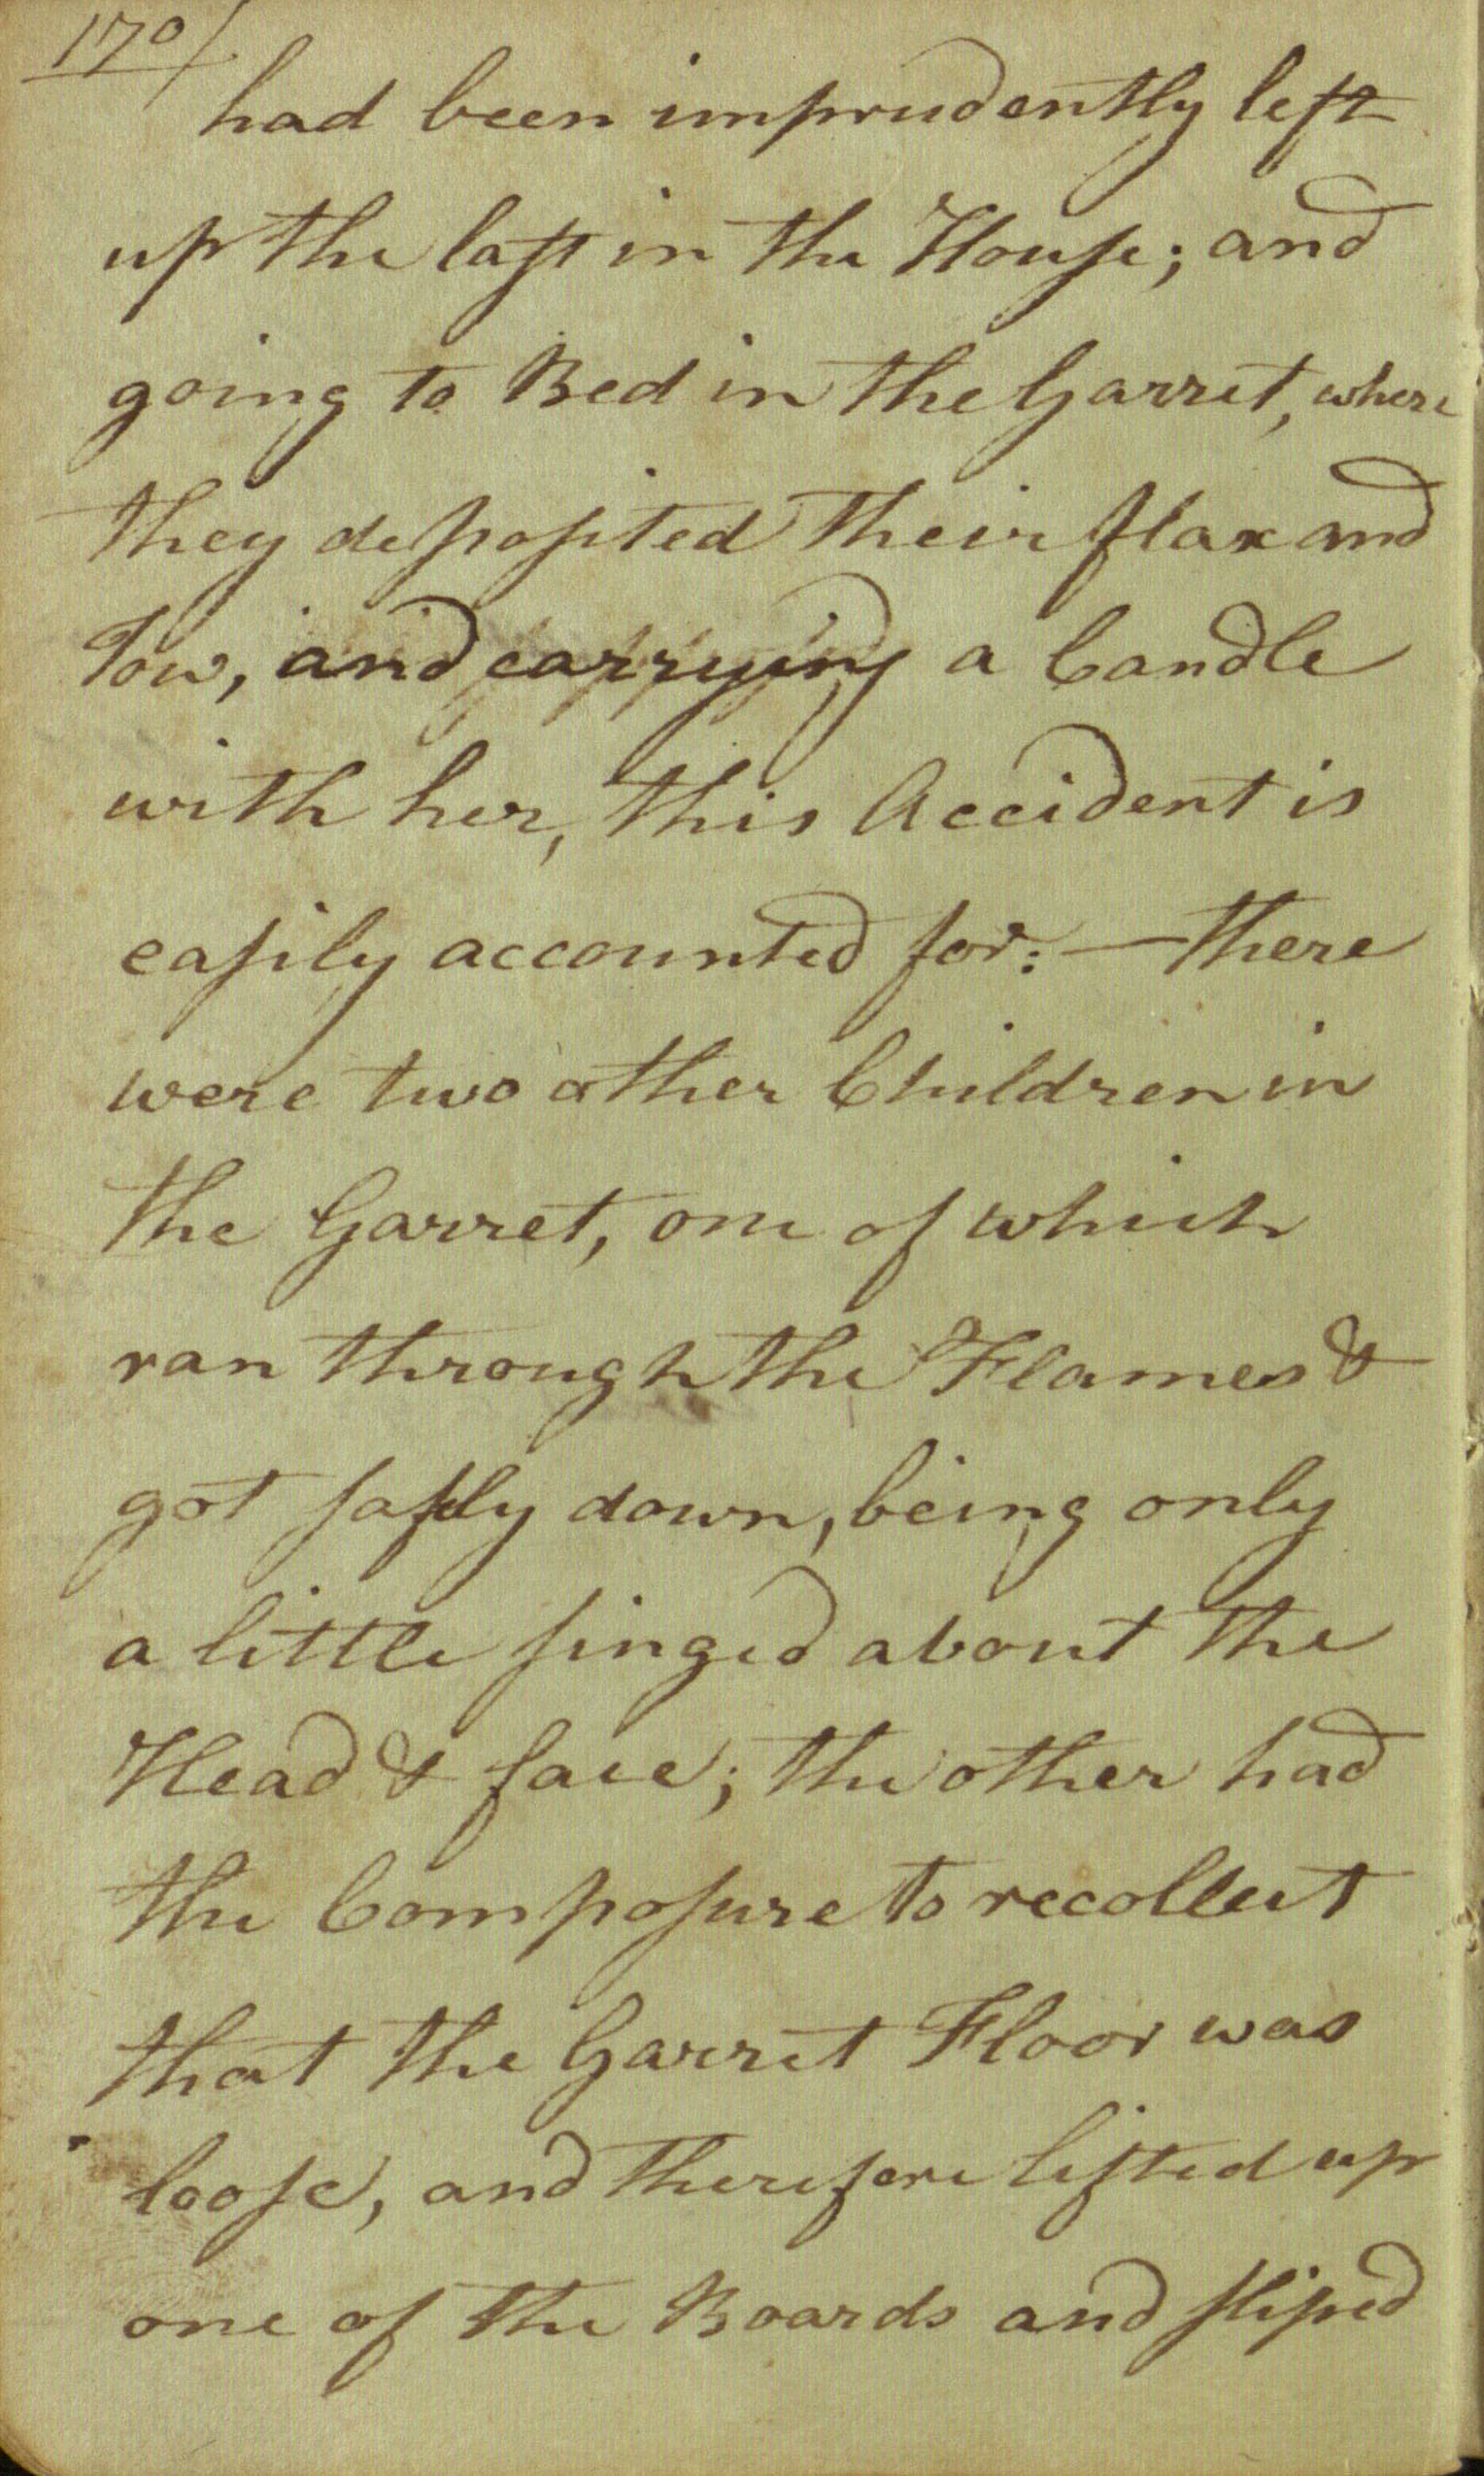 170/
had been imprudently left
up the last in the House; and
going to Bed in the Garret, where
they deposited their flax and
Tow, and carrying a Candle
with her, this Accident is
easily accounted for: — there
were two other Children in
the Garret, one of which
ran through the Flames &
got safely down, being only
a little singed about the
Head & face; the other had
the Composure to recollect
that the Garret Floor was
loose, and therefore lifted up
one of the Boards and sliped